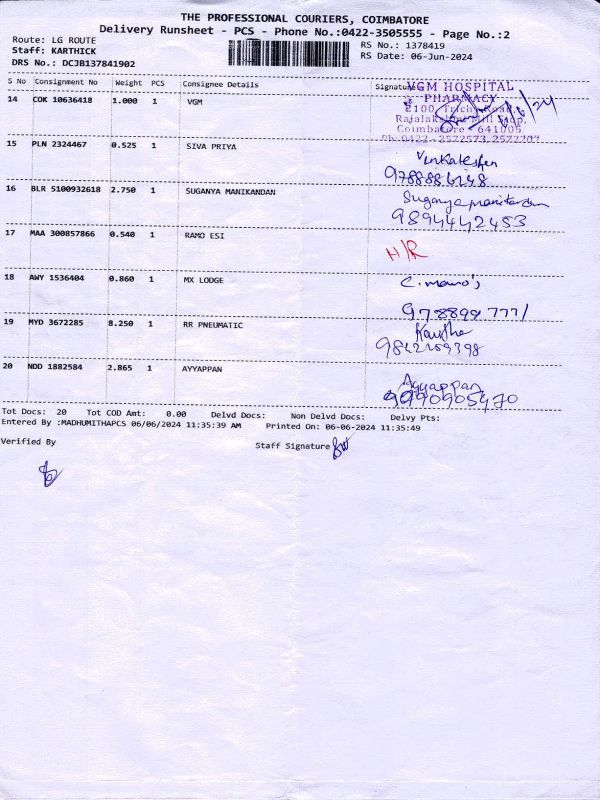 THE PROFESSIONAL COURIERS, COIMBATORE
Delivery Runsheet - PCS - Phone No.:0422-3505555 - Page No.:2
Route: LG ROUTE
Staff: KARTHICK
DRS No.: DCJB137841902
RS No.: 1378419
RS Date: 06-Jun-2024
S No Consignment No Weight PCS Consignee Details Signature
14 COK 10636418 1.000 1 VGM
VGM HOSPITAL
PHARMACY
2100, Trichy Road,
Rajalakshmi Mill Stop,
Coimbatore - 641005
Ph:0422 - 2572573, 2572707
6/6/24
15 PLN 2324467 0.525 1 SIVA PRIYA
Venkateshan
16 BLR 5100932618 2.750 1 SUGANYA MANIKANDAN
Suganya manikandan
9894442453
17 MAA 300857866 0.540 1 RAMO ESI
H/R
18 AWY 1536404 0.860 1 MX LODGE
19 MYD 3672285 8.250 1 RR PNEUMATIC
20 NDD 1882584 2.865 1 AYYAPPAN
Ayyappan
Tot Docs: 20 Tot COD Amt: 0.00 Delvd Docs: Non Delvd Docs: Delvy Pts:
Entered By :MADHUMITHAPCS 06/06/2024 11:35:39 AM Printed On: 06-06-2024 11:35:49
Verified By
Staff Signature